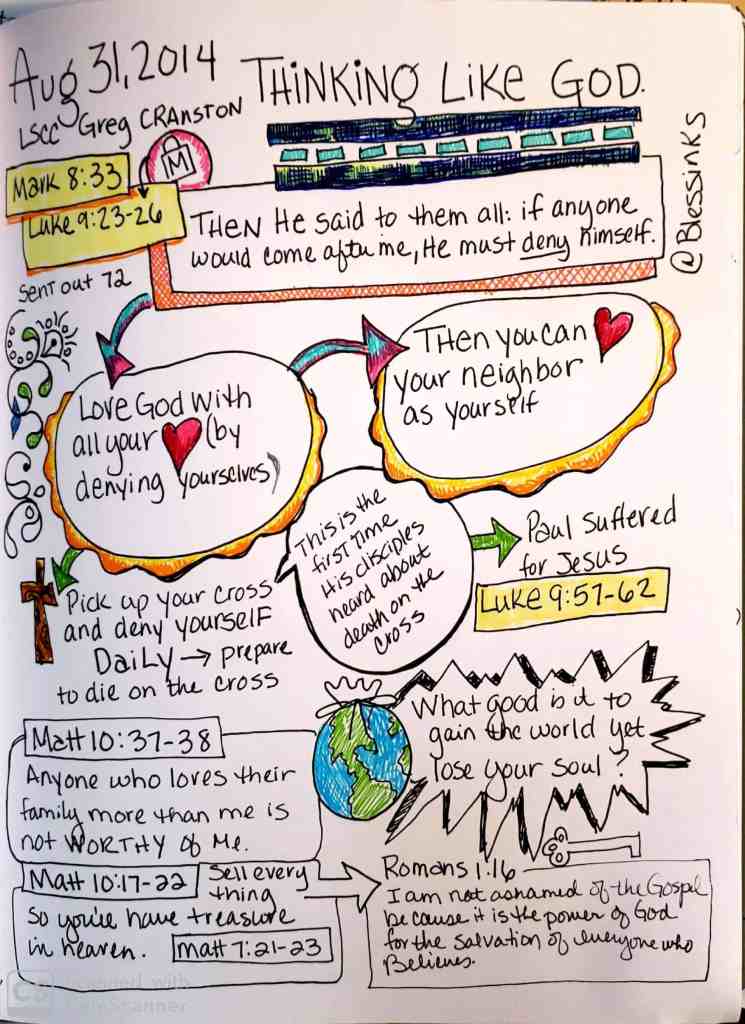 Aug 31, 2014
THINKING LIKE GOD.
LSCC Greg CRANSTON
Mark 8:33
M
Luke 9:23-26
THEN He said to them all: if anyone
would come after me, He must deny himself.
@Blessinks
Sent out 72
Love God with
all your (by
denying yourselves)
Then you can
your neighbor
as yourself
This is the
first time
His disciples
heard about
death on the
cross
Paul suffered
for Jesus
Luke 9:57-62
Pick up your cross
and deny yourself
DAILY → prepare
to die on the cross
What good is it to
gain the world yet
lose your soul?
Matt 10:37-38
Anyone who loves their
family more than me is
not WORTHY of Me.
Matt 10:17-22
Sell every
thing
so you've have treasure
in heaven.
Matt 7:21-23
Romans 1:16
I am not ashamed of the Gospel
because it is the power of God
for the salvation of everyone who
Believes.
CS
Scanned with
CamScanner